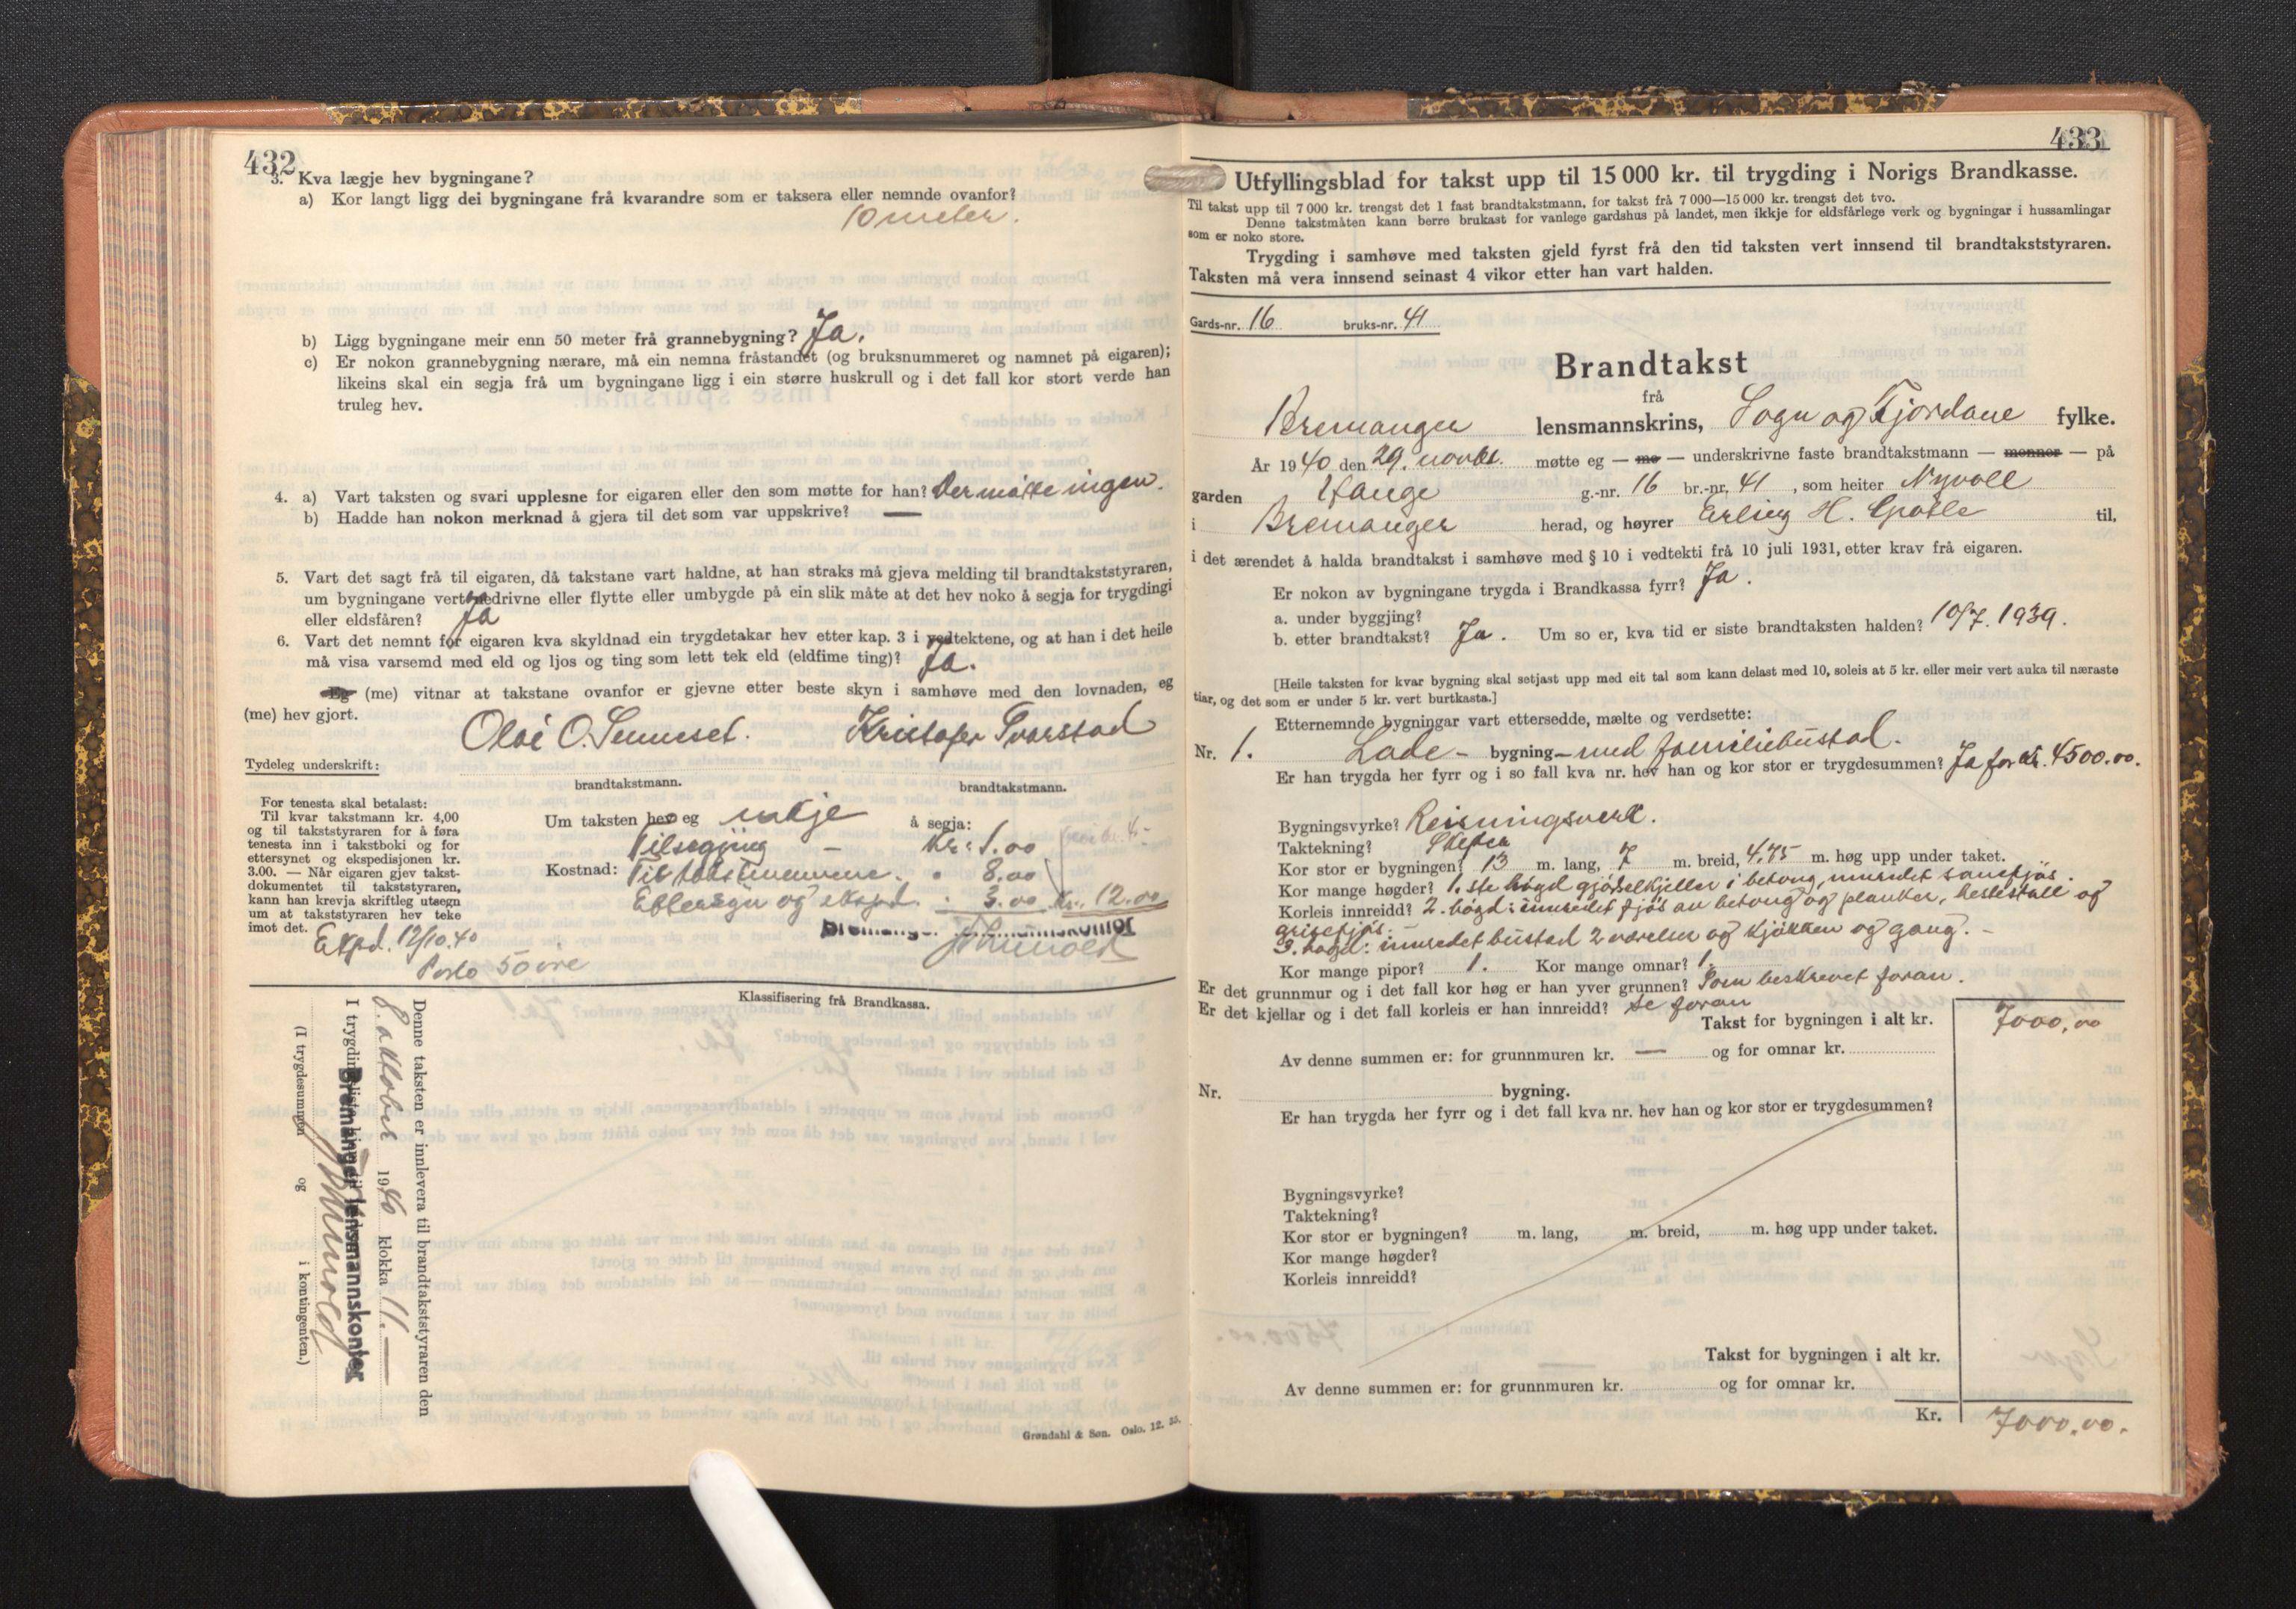 432
3. Kva lægje hev bygningane?
a) Kor langt ligg dei bygningane frå kvarandre som er taksera eller nemnde ovanfor?
10 meter.
b) Ligg bygningane meir enn 50 meter frå grannebygning? Ja.
c) Er nokon grannebygning nærare, må ein nemna fråstandet (og bruksnummeret og namnet på eigaren);
likeins skal ein segja frå um bygningane ligg i ein større huskrull og i det fall kor stort verde han
truleg hev.
4. a) Vart taksten og svari upplesne for eigaren eller den som møtte for han? Der møtte ingen.
b) Hadde han nokon merknad å gjera til det som var uppskrive? —
5. Vart det sagt frå til eigaren, då takstane vart haldne, at han straks må gjeva melding til brandtakststyraren,
um bygningane vert nedrivne eller flytte eller umbygde på ein slik måte at det hev noko å segja for trygdingi
eller eldsfåren? Ja
6. Vart det nemnt for eigaren kva skyldnad ein trygdetakar hev etter kap. 3 i vedtektene, og at han i det heile
må visa varsemd med eld og ljos og ting som lett tek eld (eldfime ting)? Ja.
Eg (me) vitnar at takstane ovanfor er gjevne etter beste skyn i samhøve med den lovnaden, eg
(me) hev gjort.
Olai O. Senneset. Kristofer Tvorstad
Tydeleg underskrift:
brandtakstmann. brandtakstmann.
For tenesta skal betalast:
Til kvar takstmann kr. 4,00
og til takststyraren for å føra
tenesta inn i takstboki og for
ettersynet og ekspedisjonen kr.
3.00. — Når eigaren gjev takst-
dokumentet til takststyraren,
kann han krevja skriftleg utsegn
um at takststyraren hev teke
imot det.
Um taksten hev eg inkje å segja:
Tilsegjing - Kr. 1.00
Kostnad: Til takstmennene. " 8.00
Ettersyn og eksped. " 3.00 Kr. 12.00
Bremanger lensmannskontor
Expd. 12/10.40
Porto 50 øre
Klassifisering frå Brandkassa.
Denne taksten er innlevera til brandtakststyraren den
8. oktober 1940 klokka 11. —
Bremanger lensmannskontor
I trygdingslista
(I trygdesummen og i kontingenten.)
Grøndahl & Søn. Oslo. 12. 35.
433
Utfyllingsblad for takst upp til 15 000 kr. til trygding i Norigs Brandkasse.
Til takst upp til 7 000 kr. trengst det 1 fast brandtakstmann, for takst frå 7 000—15 000 kr. trengst det tvo.
Denne takstmåten kann berre brukast for vanlege gardshus på landet, men ikkje for eldsfårlege verk og bygningar i hussamlingar
som er noko store.
Trygding i samhøve med taksten gjeld fyrst frå den tid taksten vert innsend til brandtakststyraren.
Taksten må vera innsend seinast 4 vikor etter han vart halden.
Gards-nr. 16 bruks-nr. 41
Brandtakst
frå
Bremanger lensmannskrins, Sogn og Fjordane fylke.
År 1940 den 29. novbr. møtte eg — me — underskrivne faste brandtakstmann — menner — på
garden Hauge g.-nr. 16 br.-nr. 41, som heiter Nyvoll
i Bremanger herad, og høyrer Erling H. til,
i det ærendet å halda brandtakst i samhøve med § 10 i vedtekti frå 10 juli 1931, etter krav frå eigaren.
Er nokon av bygningane trygda i Brandkassa fyrr? Ja.
a. under byggjing?
b. etter brandtakst? Ja. Um so er, kva tid er siste brandtaksten halden? 10/7. 1939.
[Heile taksten for kvar bygning skal setjast upp med eit tal som kann delast med 10, soleis at 5 kr. eller meir vert auka til næraste
tiar, og det som er under 5 kr. vert burtkasta.]
Etternemnde bygningar vart ettersedde, mælte og verdsette:
Nr. 1. Løde - bygning - med familiebustad.
Er han trygda her fyrr og i so fall kva nr. hev han og kor stor er trygdesummen? Ja for kr. 4500.00.
Bygningsvyrke? Reisningsverk.
Taktekning? Skifer
Kor stor er bygningen? 13 m. lang, 7 m. breid, 4,75 m. høg upp under taket.
Kor mange høgder? 1. ste høgd gjødselkjeller i betong, innredet sauefjøs.
Korleis innreidd? 2. høgd: innredet fjøs av betong og planker, hestestall og
grisefjøs. -
3. høgd: innredet bustad 2 værelser og kjøkken og gang. -
Kor mange pipor? 1. Kor mange omnar? 1.
Er det grunnmur og i det fall kor høg er han yver grunnen? Som beskrevet foran.
Er det kjellar og i det fall korleis er han innreidd? se foran
Takst for bygningen i alt kr. 7000,00
Av denne summen er: for grunnmuren kr. — og for omnar kr.
Nr. bygning.
Er han trygda her fyrr og i det fall kva nr. hev han og kor stor er trygdesummen?
Bygningsvyrke?
Taktekning?
Kor stor er bygningen? m. lang, m. breid, m. høg upp under taket.
Kor mange høgder?
Korleis innreidd?
Takst for bygningen i alt kr.
Av denne summen er: for grunnmuren kr. og for omnar kr.
Kr. 7000.00.